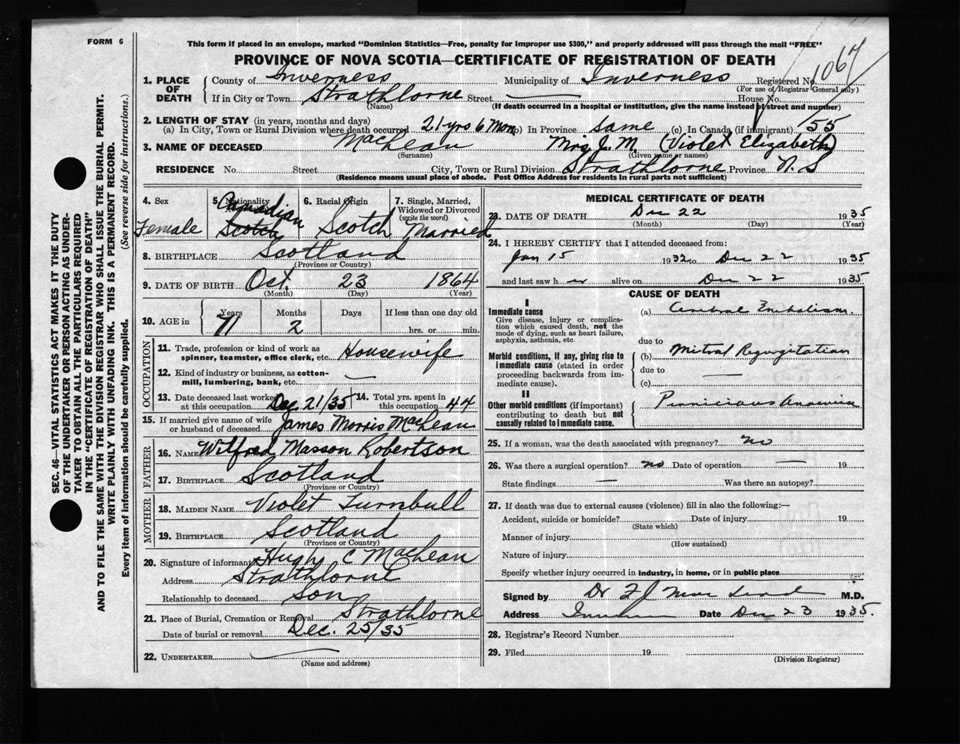 FORM 6
This form if placed in an envelope, marked "Dominion Statistics—Free, penalty for improper use $300," and properly addressed will pass through the mail "FREE"
PROVINCE OF NOVA SCOTIA—CERTIFICATE OF REGISTRATION OF DEATH
1067
1. PLACE OF DEATH County of Inverness Municipality of Inverness Registered No.
(For use of Registrar General only)
If in City or Town Strathlorne Street — House No.
(Name) (If death occurred in a hospital or institution, give the name instead of street and number)
2. LENGTH OF STAY (in years, months and days)
(a) In City, Town or Rural Division where death occurred 21 yrs 6 Mon (b) In Province same (c) In Canada (if immigrant) 55
3. NAME OF DECEASED MacLean Mrs J. M. (Violet Elizabeth)
(Surname) (Given name or names)
RESIDENCE No. Street City, Town or Rural Division Strathlorne Province N.S
(Residence means usual place of abode. Post Office Address for residents in rural parts not sufficient)
4. Sex 5. Nationality 6. Racial Origin 7. Single, Married, Widowed or Divorced (write the word)
Female Canadian Scotch Scotch Married
8. BIRTHPLACE Scotland
(Province or Country)
9. DATE OF BIRTH Oct. 23 1864
(Month) (Day) (Year)
10. AGE in Years Months Days If less than one day old
71 2 hrs. or min.
OCCUPATION
11. Trade, profession or kind of work as spinner, teamster, office clerk, etc. Housewife
12. Kind of industry or business, as cotton-mill, lumbering, bank, etc. —
13. Date deceased last worked at this occupation Dec 21/35 14. Total yrs. spent in this occupation 44
15. If married give name of wife or husband of deceased James Morris MacLean
FATHER
16. NAME Wilfred Masson Robertson
17. BIRTHPLACE Scotland
(Province or Country)
MOTHER
18. MAIDEN NAME Violet Turnbull
19. BIRTHPLACE Scotland
(Province or Country)
20. Signature of informant Hugh C MacLean
Address Strathlorne
Relationship to deceased son
21. Place of Burial, Cremation or Removal Strathlorne
Date of burial or removal Dec. 25/35
22. UNDERTAKER —
(Name and address)
MEDICAL CERTIFICATE OF DEATH
23. DATE OF DEATH Dec 22 1935
(Month) (Day) (Year)
24. I HEREBY CERTIFY that I attended deceased from:
Jan 15 1932 to Dec 22 1935
and last saw her alive on Dec 22 1935
CAUSE OF DEATH
I
Immediate cause
Give disease, injury or complication which caused death, not the mode of dying, such as heart failure, asphyxia, asthenia, etc.
(a) Cerebral Embolism
due to
Morbid conditions, if any, giving rise to immediate cause (stated in order proceeding backwards from immediate cause).
(b) Mitral Regurgitation
due to —
(c)
II
Other morbid conditions (if important) contributing to death but not causally related to immediate cause.
Pernicious Anaemia
25. If a woman, was the death associated with pregnancy? no
26. Was there a surgical operation? no Date of operation — 19
State findings — Was there an autopsy?
27. If death was due to external causes (violence) fill in also the following:—
Accident, suicide or homicide? Date of injury 19
(State which)
Manner of injury
(How sustained)
Nature of injury
Specify whether injury occurred in industry, in home, or in public place
Signed by Dr M.D.
Address Date Dec 23 1935.
28. Registrar's Record Number
29. Filed 19
(Division Registrar)
SEC. 46—VITAL STATISTICS ACT MAKES IT THE DUTY
OF THE UNDERTAKER OR PERSON ACTING AS UNDER-
TAKER TO OBTAIN ALL THE PARTICULARS REQUIRED
IN THE "CERTIFICATE OF REGISTRATION OF DEATH"
AND TO FILE THE SAME WITH THE DIVISION REGISTRAR WHO SHALL ISSUE THE BURIAL PERMIT.
WRITE PLAINLY WITH UNFADING INK. THIS IS A PERMANENT RECORD.
Every item of information should be carefully supplied. (See reverse side for instructions.)